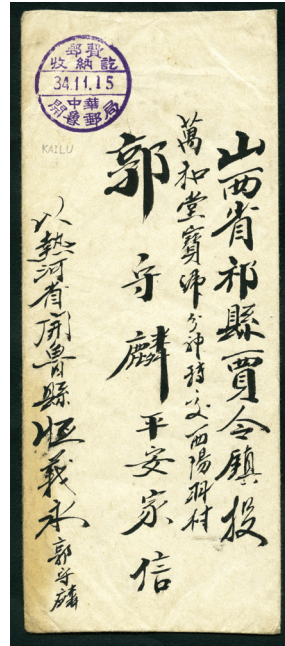 郵費
收納訖
34.11.15
中華
開魯郵局
KAILU
山西省祁縣賈令鎮投
萬和堂寶號分神轉交西陽羽村
郭守麟平安家信
以熱河省開魯縣恆義永郭守麟